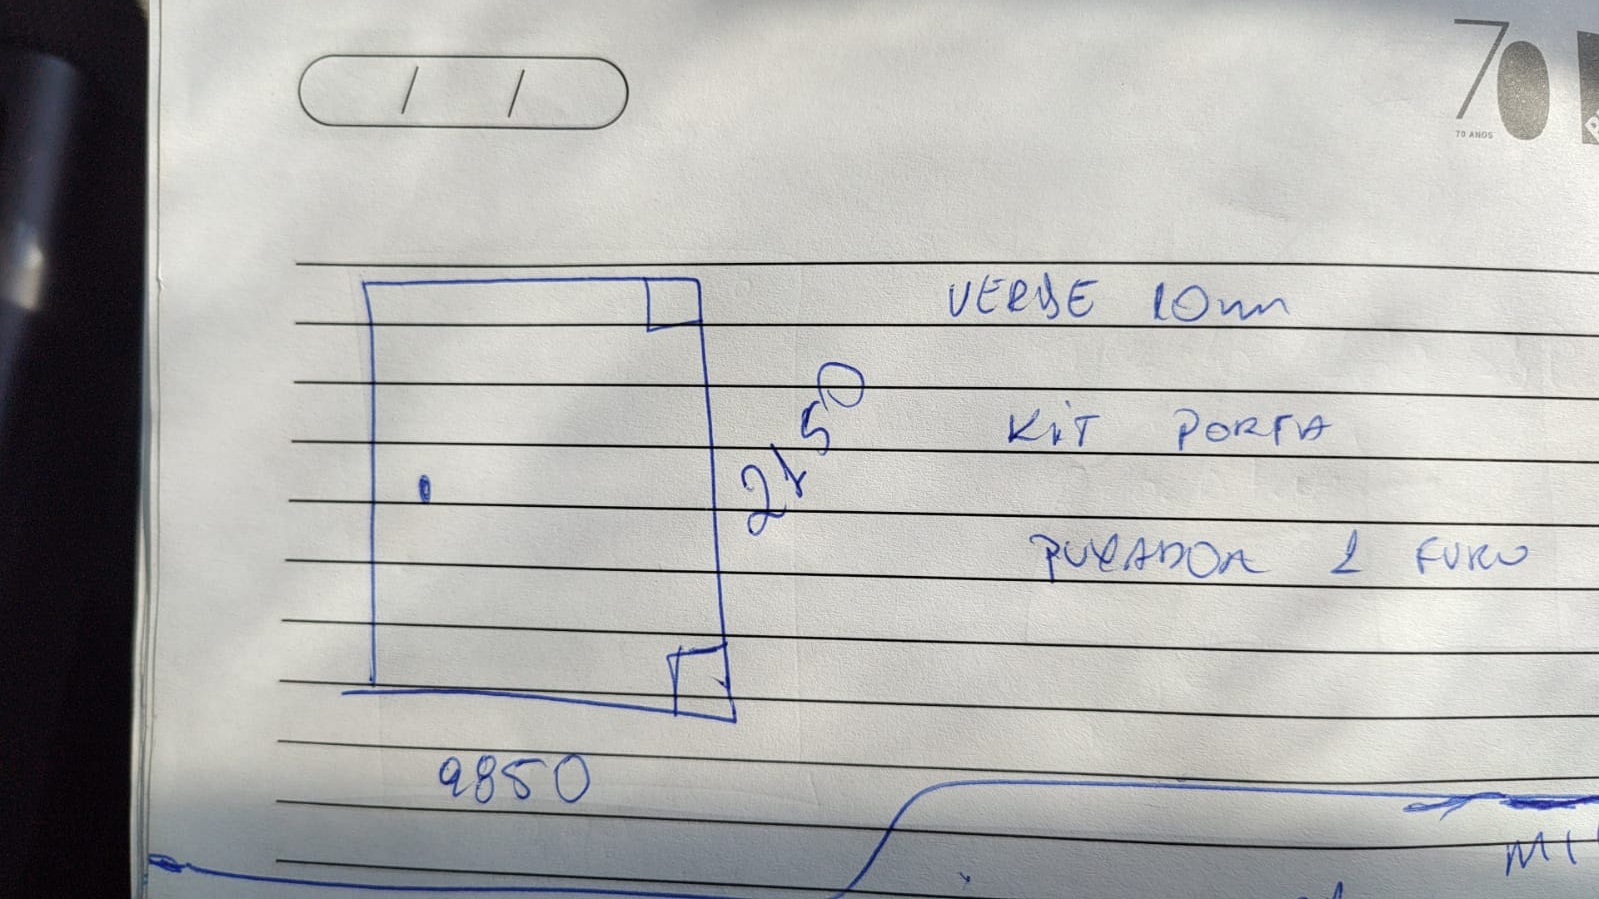 / /
70
70 ANOS
VERDE 10mm
2150
KiT PORTA
PUXADOR 1 FURO
9850
MI